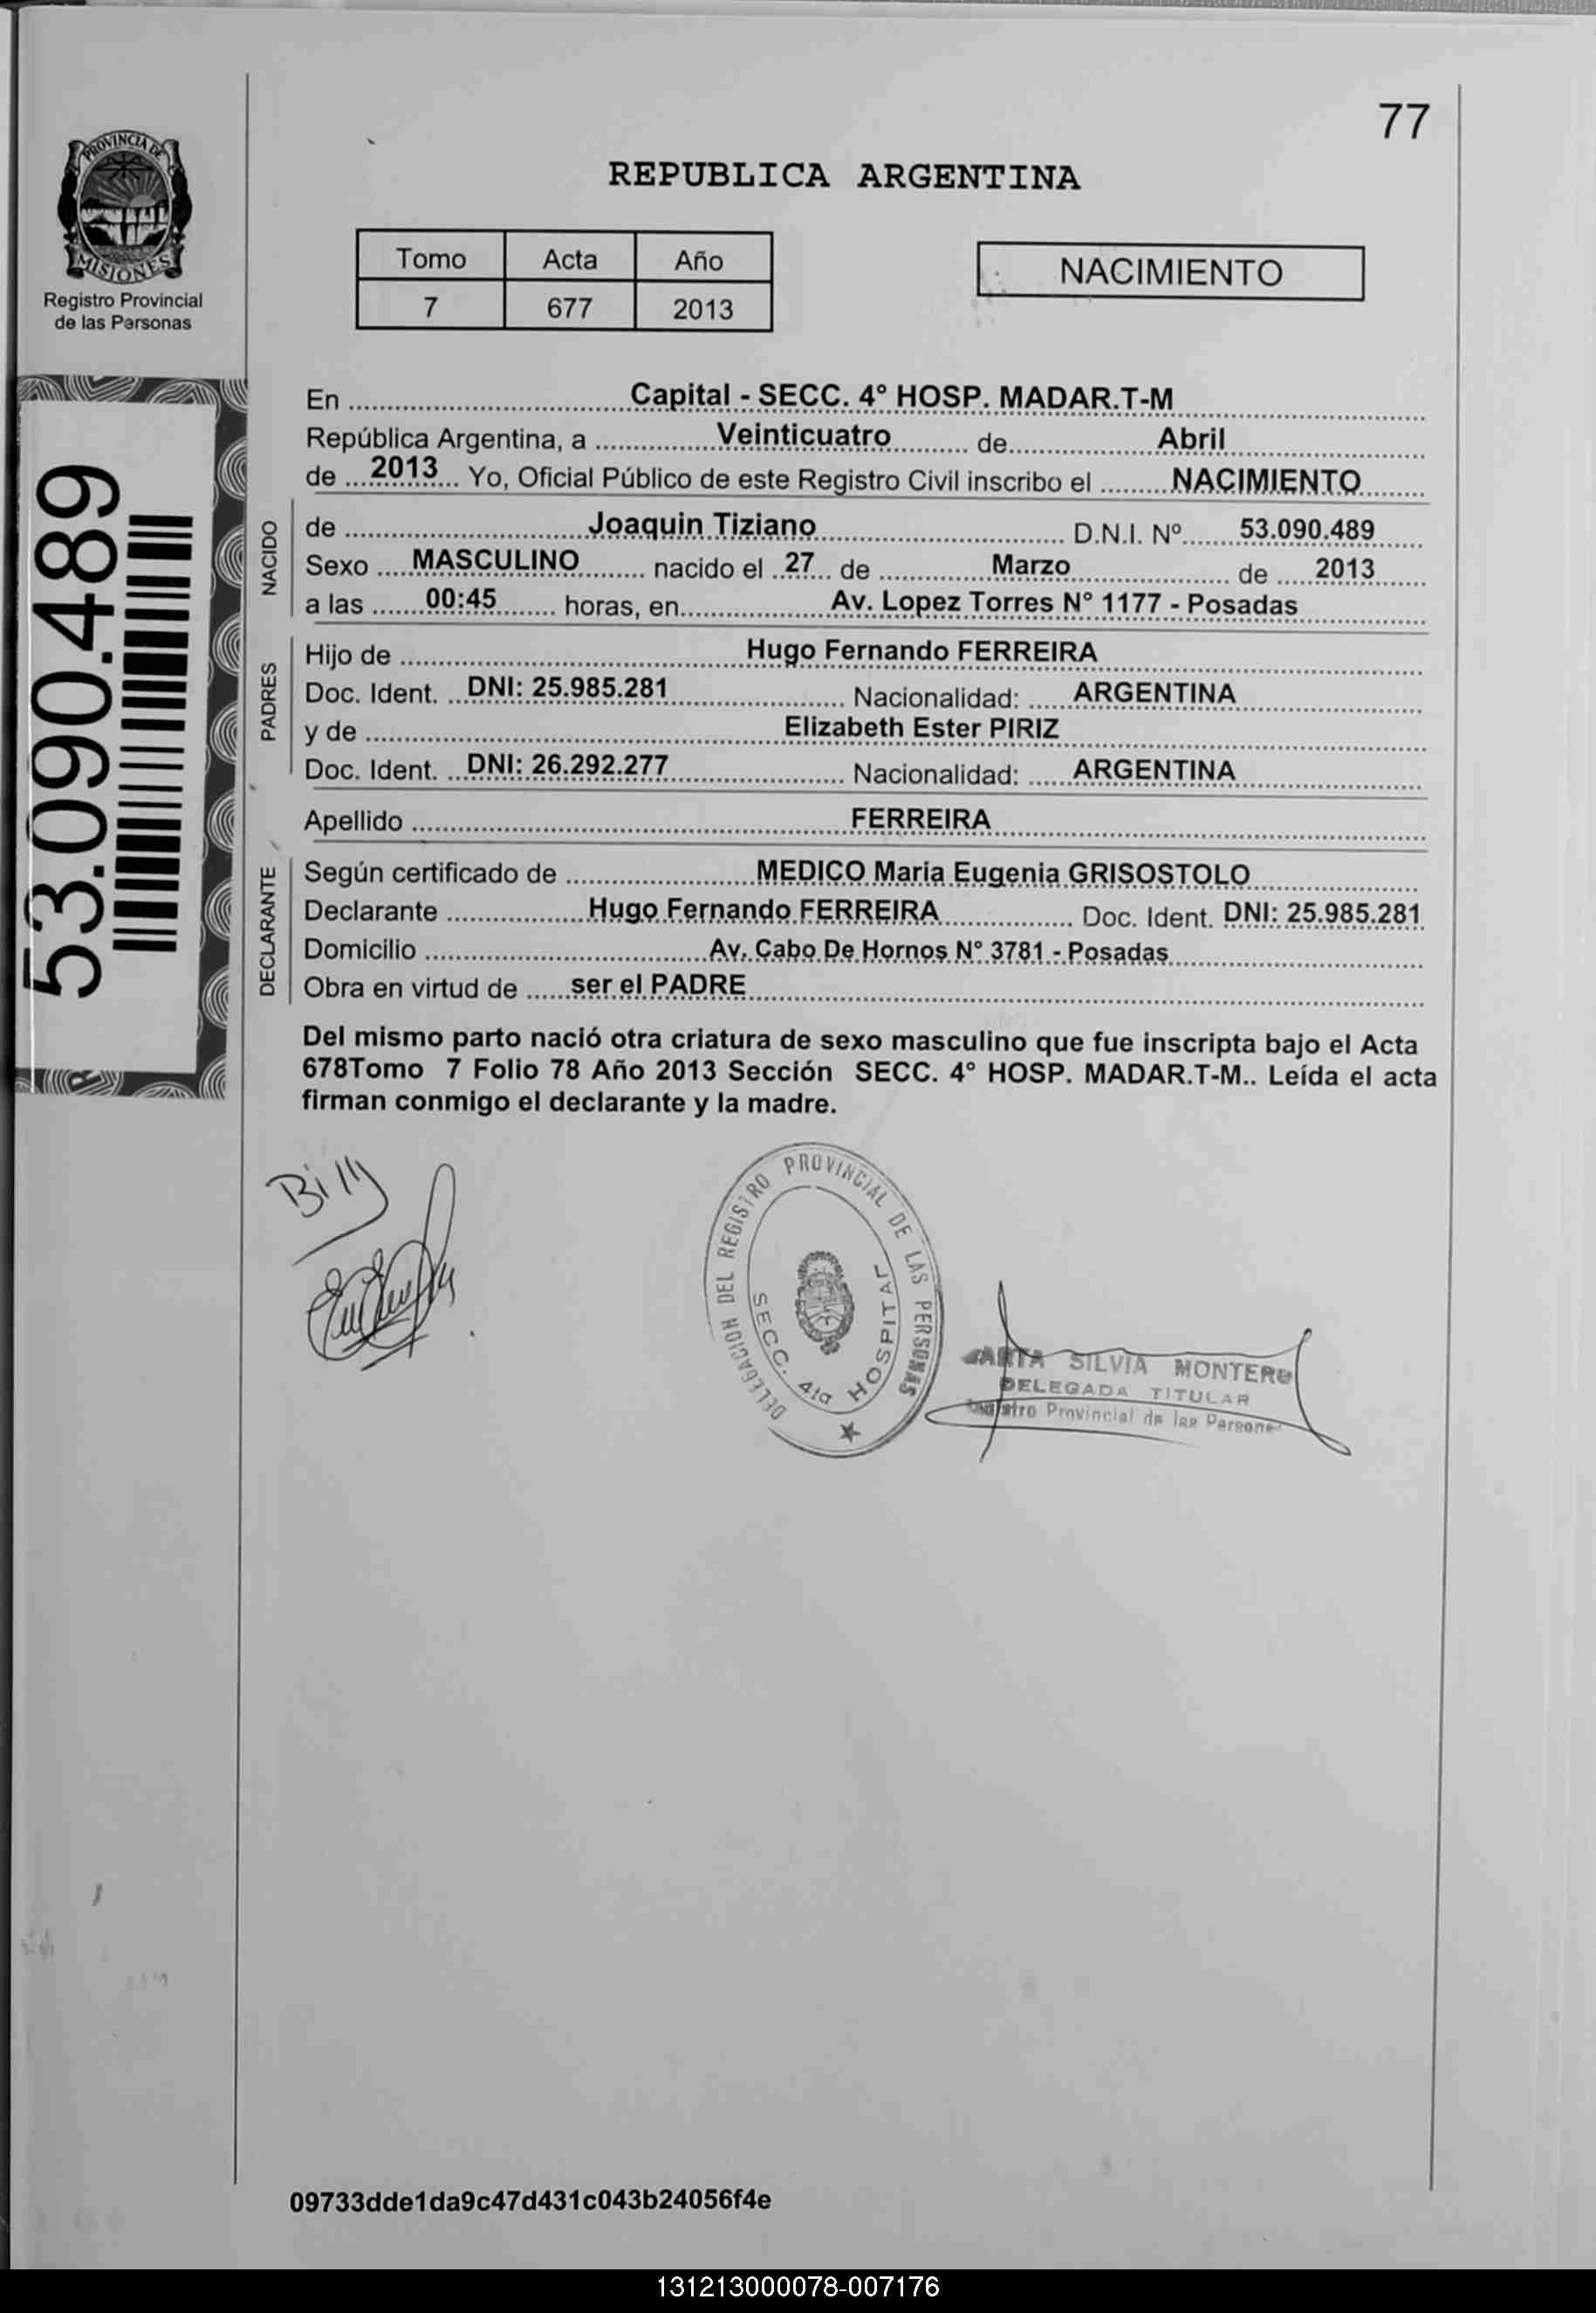 77
PROVINCIA DE
MISIONES
Registro Provincial
de las Personas
REPUBLICA ARGENTINA
Tomo Acta Año
7 677 2013
NACIMIENTO
53.090.489
En Capital - SECC. 4° HOSP. MADAR.T-M
República Argentina, a Veinticuatro de Abril
de 2013 Yo, Oficial Público de este Registro Civil inscribo el NACIMIENTO
NACIDO
de Joaquin Tiziano D.N.I. Nº 53.090.489
Sexo MASCULINO nacido el 27 de Marzo de 2013
a las 00:45 horas, en Av. Lopez Torres N° 1177 - Posadas
PADRES
Hijo de Hugo Fernando FERREIRA
Doc. Ident. DNI: 25.985.281 Nacionalidad: ARGENTINA
y de Elizabeth Ester PIRIZ
Doc. Ident. DNI: 26.292.277 Nacionalidad: ARGENTINA
Apellido FERREIRA
DECLARANTE
Según certificado de MEDICO Maria Eugenia GRISOSTOLO
Declarante Hugo Fernando FERREIRA Doc. Ident. DNI: 25.985.281
Domicilio Av. Cabo De Hornos N° 3781 - Posadas
Obra en virtud de ser el PADRE
Del mismo parto nació otra criatura de sexo masculino que fue inscripta bajo el Acta
678Tomo 7 Folio 78 Año 2013 Sección SECC. 4° HOSP. MADAR.T-M.. Leída el acta
firman conmigo el declarante y la madre.
DELEGACION DEL REGISTRO PROVINCIAL DE LAS PERSONAS
SECC. 4ta HOSPITAL
SILVIA MONTERO
DELEGADA TITULAR
Provincial de las
09733dde1da9c47d431c043b24056f4e
131213000078-007176